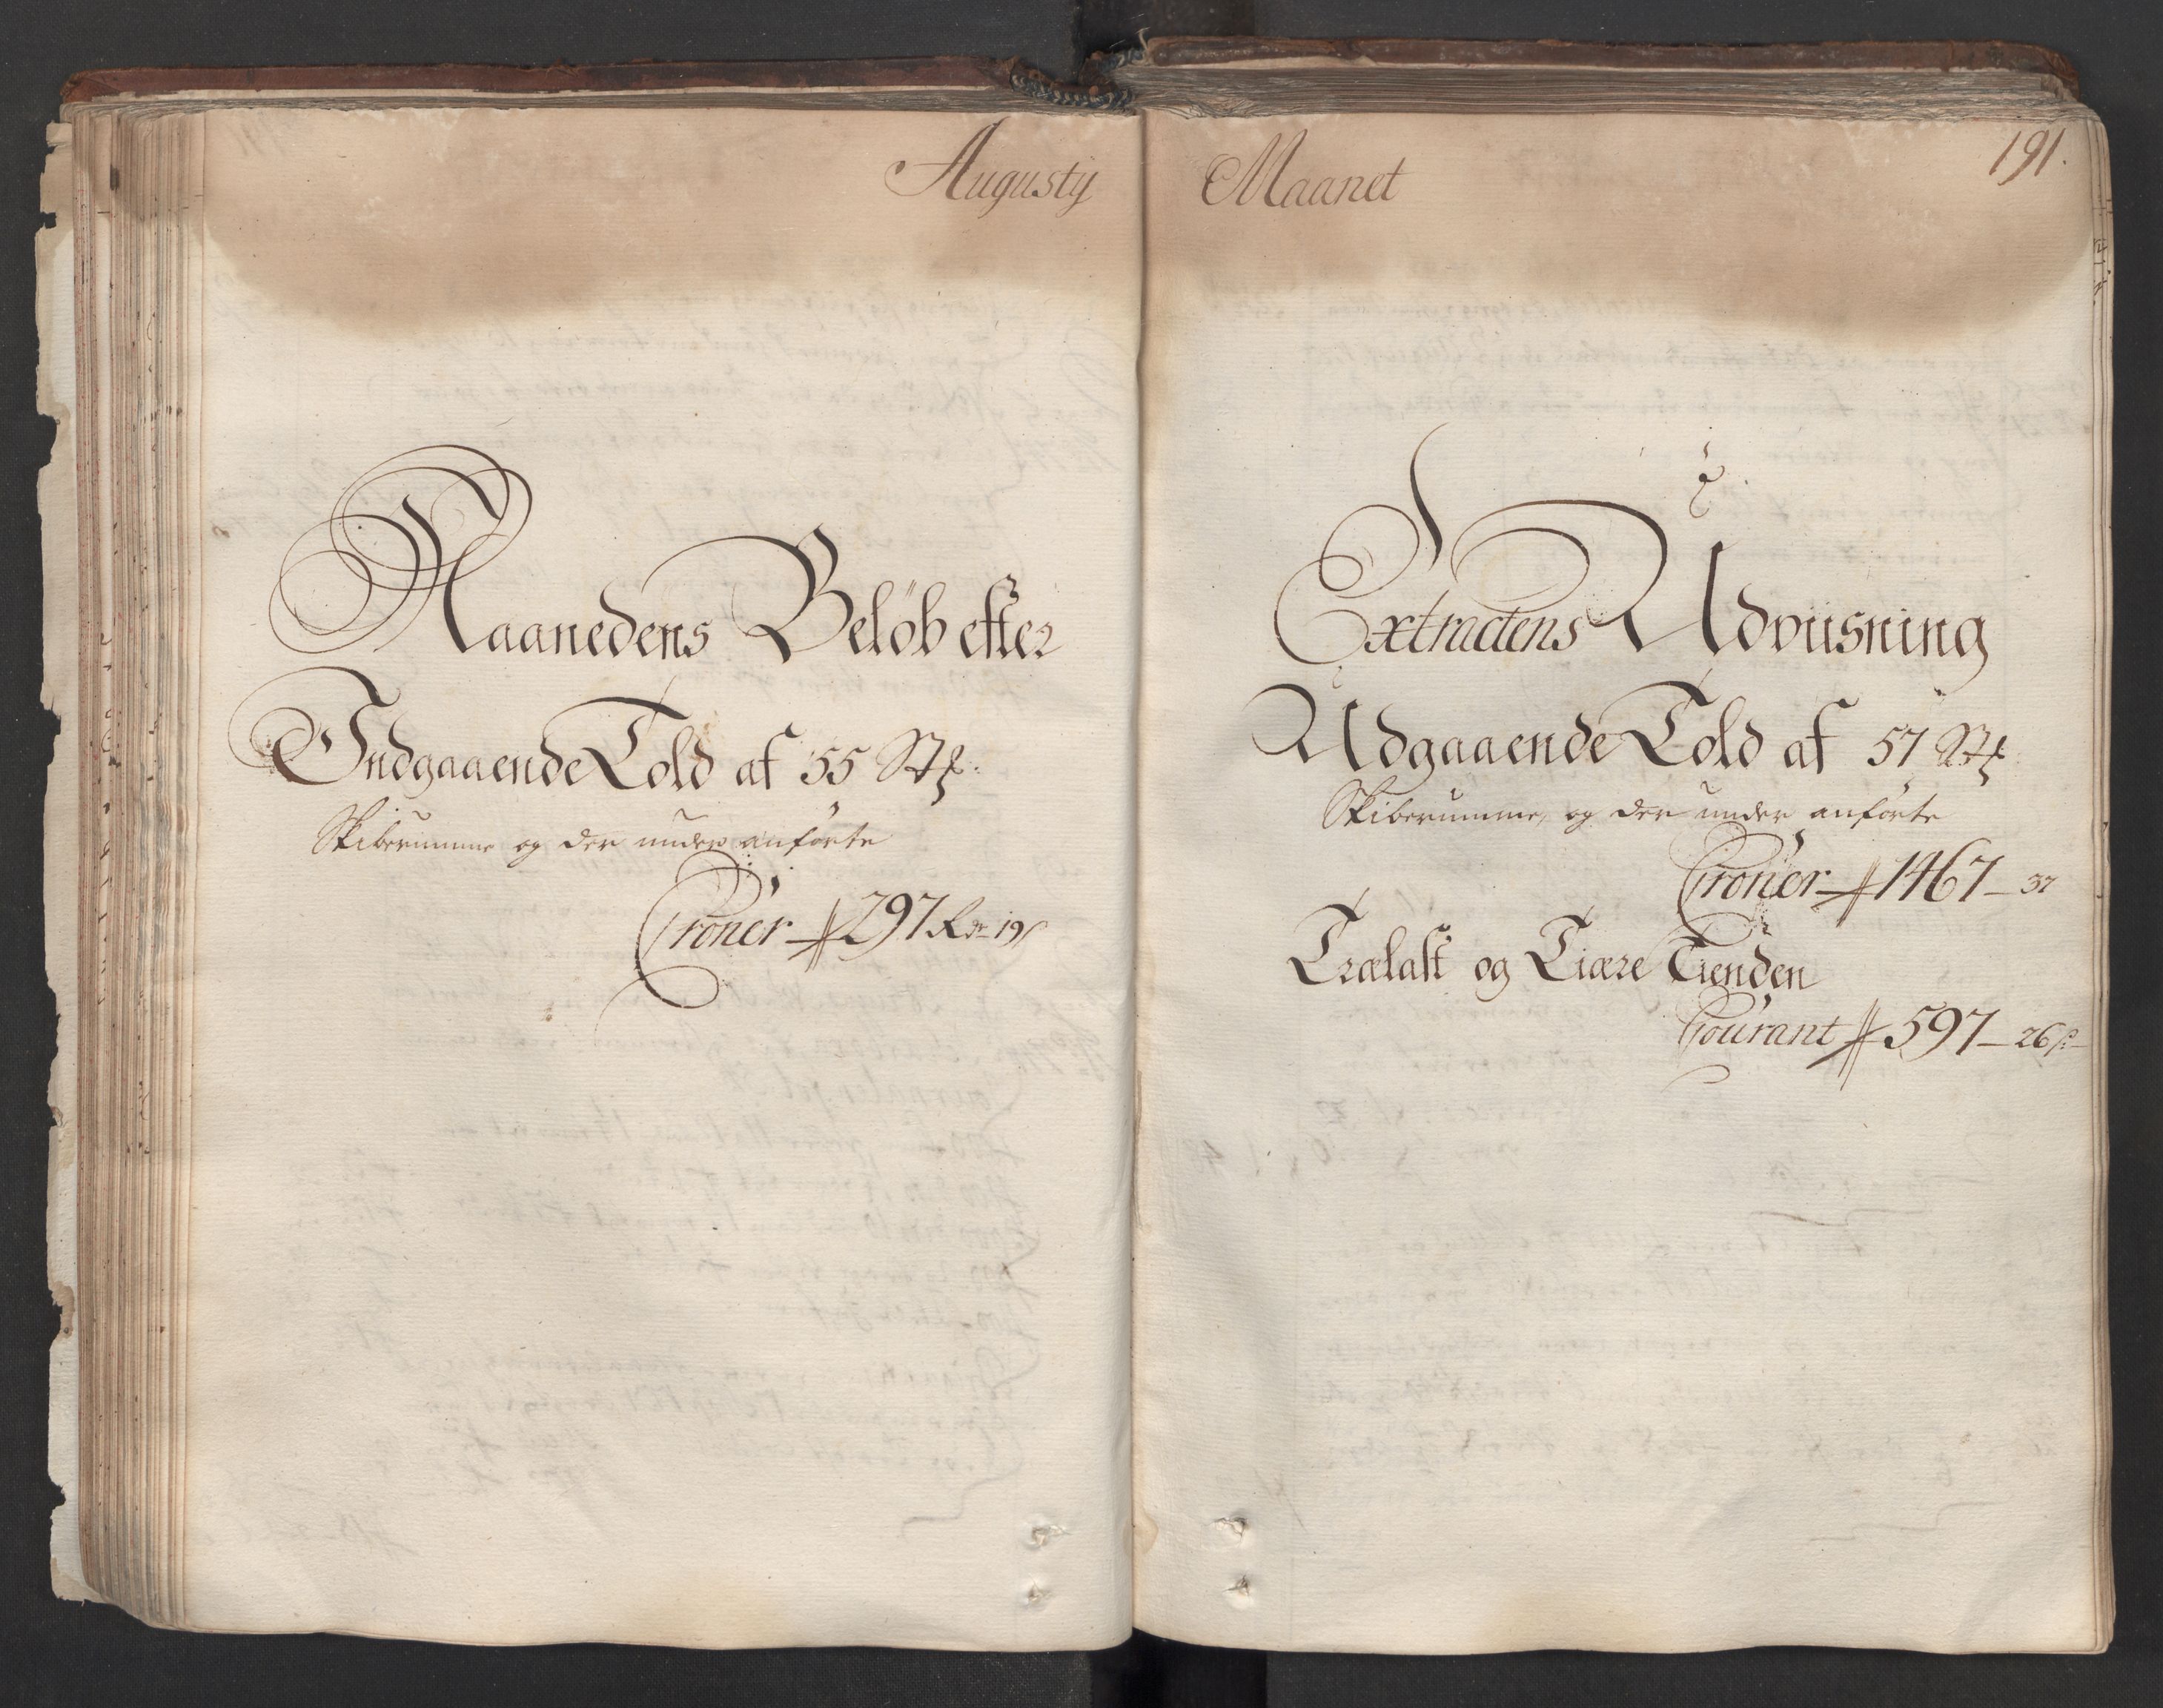 Augustij Maanet
191.
Maanedens Beløb efter
Indgaaende Told af 55 Stk:
Skiberumme og der under anførte
Croner 297 Rdr 19 s
Extractens Udviisning
Udgaaende Told af 57 Stk
Skiberumme, og der under anførte
Croner 1467 — 37
Trælast og Tiære Tienden
Courant 597 — 26 s: